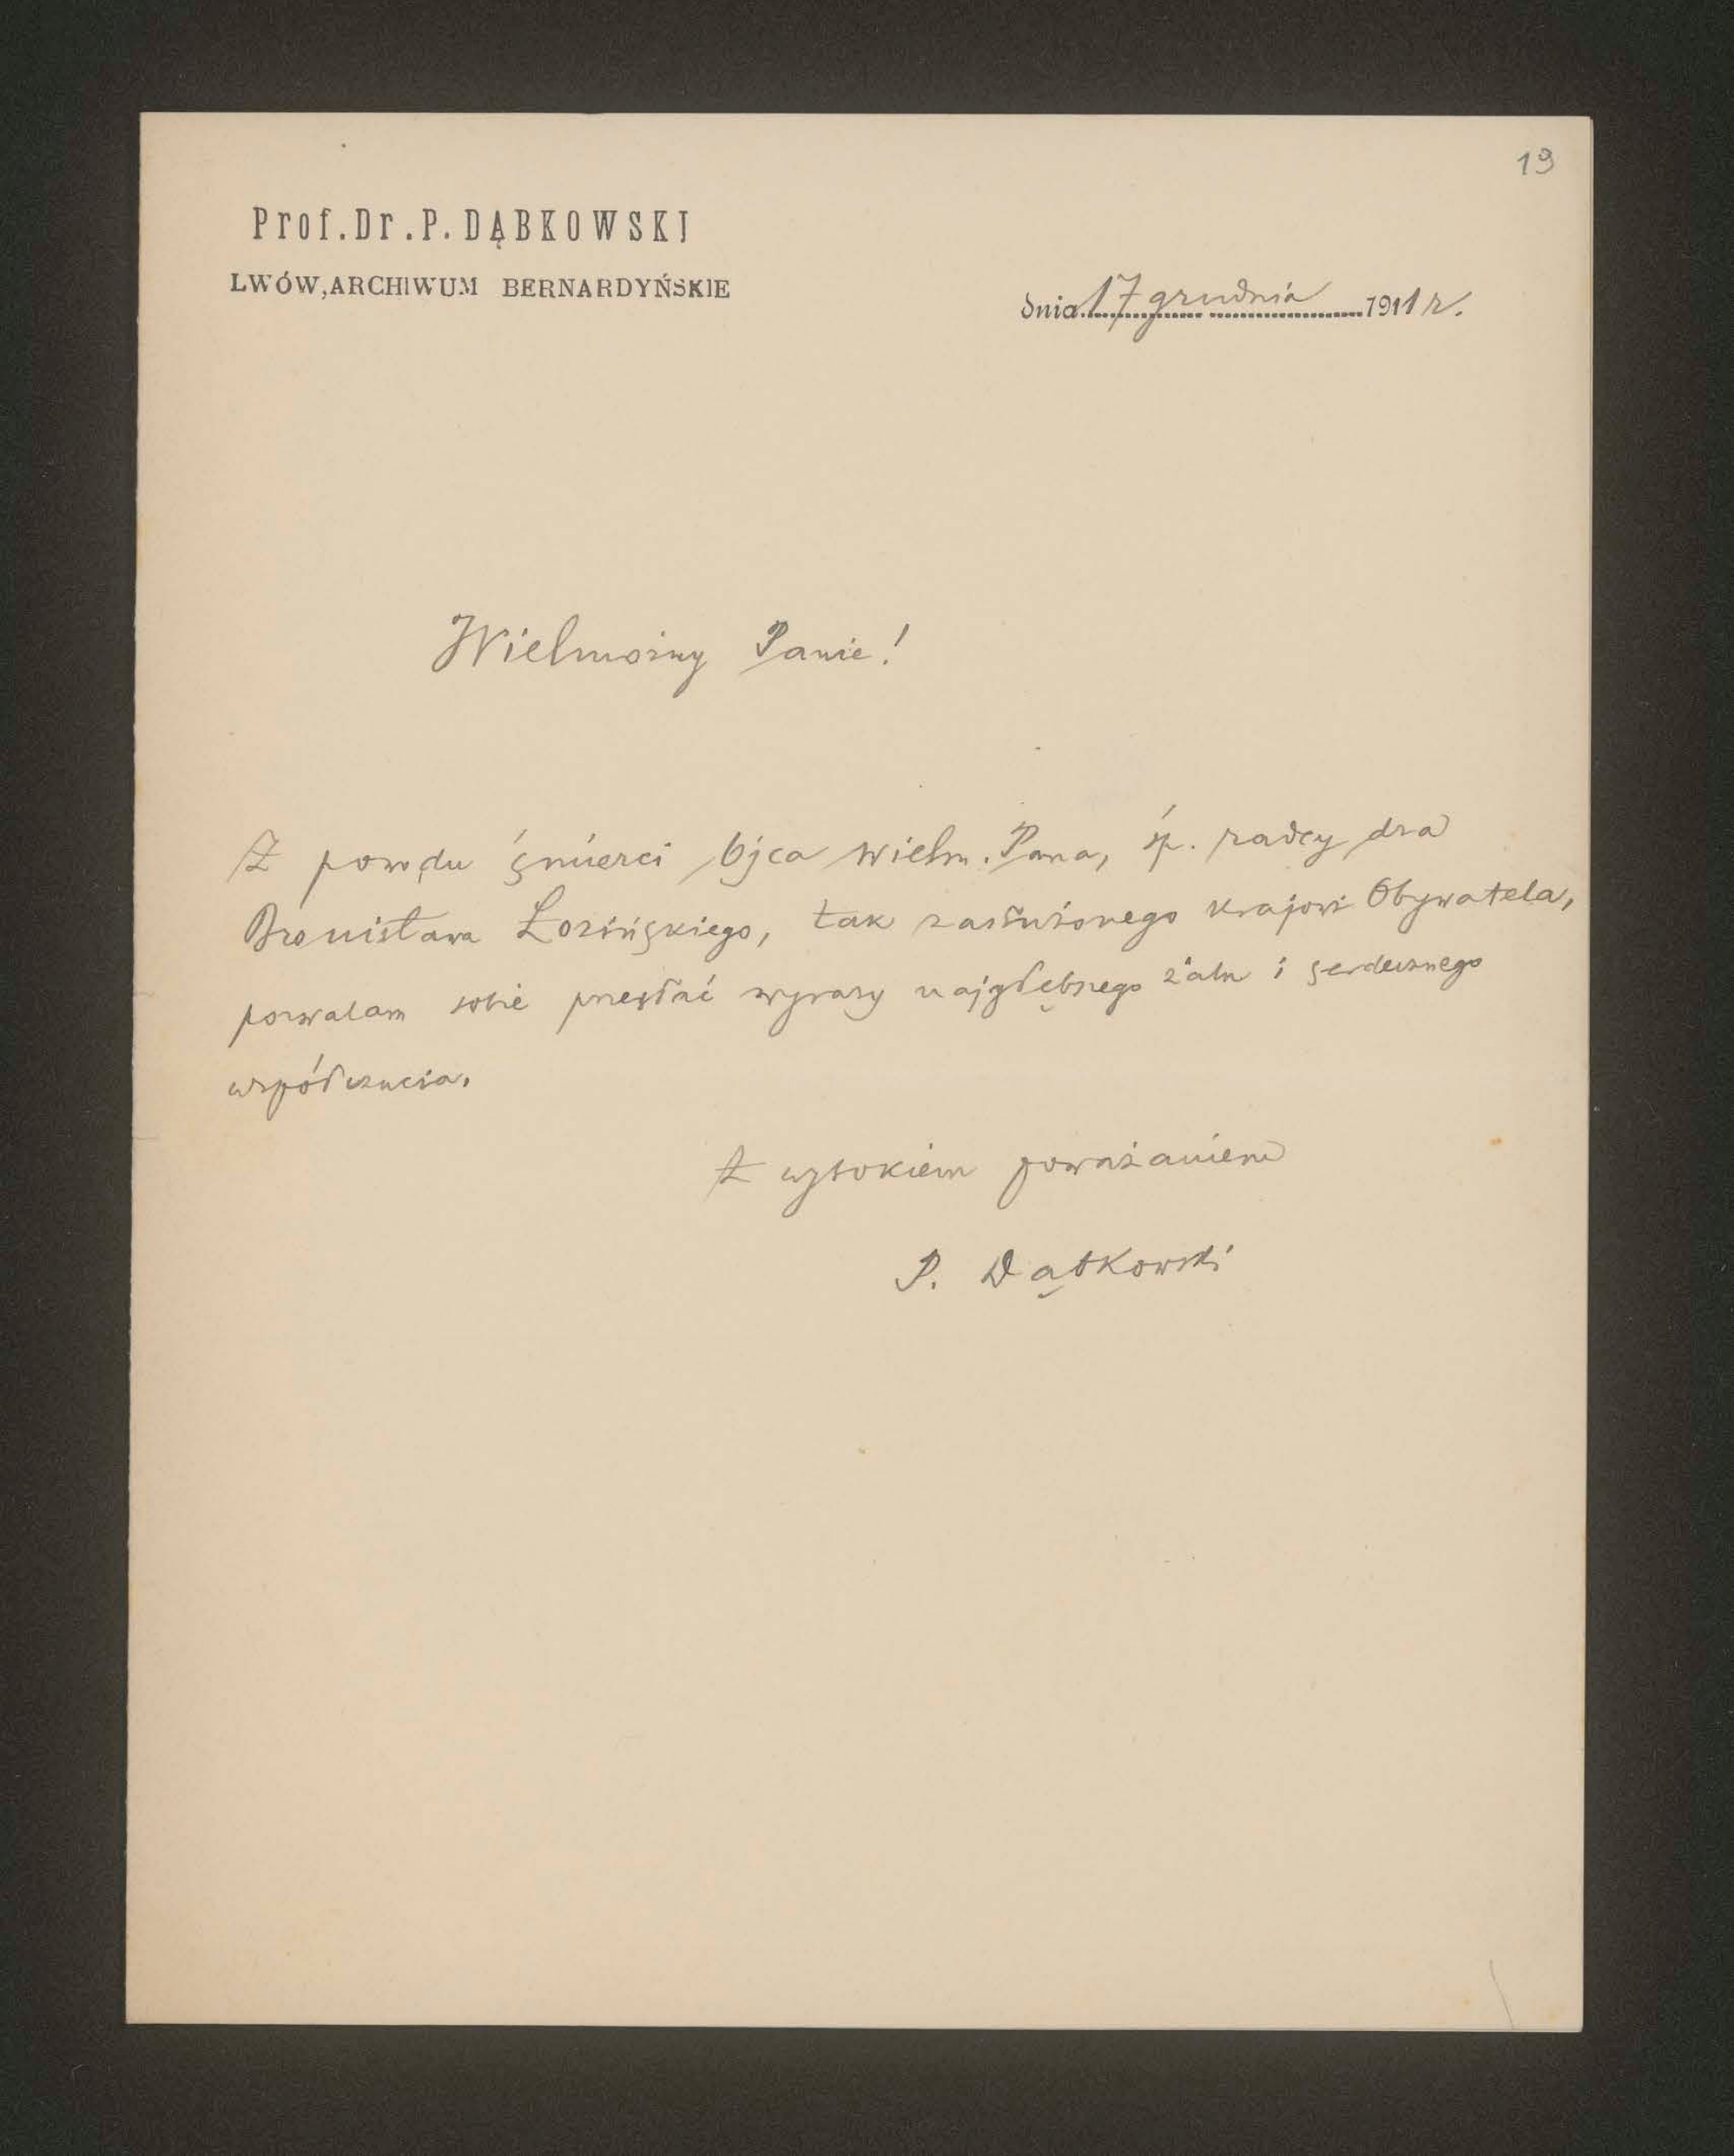 19
Prof. Dr. P. DĄBKOWSKI
LWÓW, ARCHIWUM BERNARDYŃSKIE
dnia 17 grudnia 1911 r.
Wielmożny Panie!
Z powodu śmierci Ojca Wielm. Pana, śp. radcy dra
Bronisława Łozińskiego, tak zasłużonego krajowi Obywatela,
pozwalam sobie przesłać wyrazy najgłębszego żalu i serdecznego
współczucia.
Z wysokiem poważaniem
P. Dąbkowski